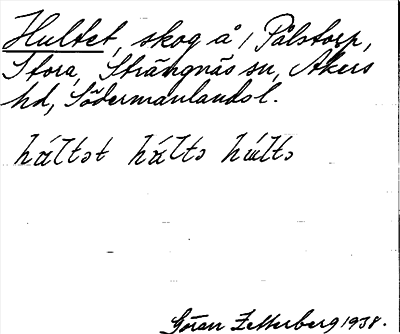 Hultet, skog å 1 Pålstorp,
Stora, Strängnäs sn, Åkers
hd, Södermanlands l.
húltɘt húltɘ húltɘ
Gören Zetterberg 1938.